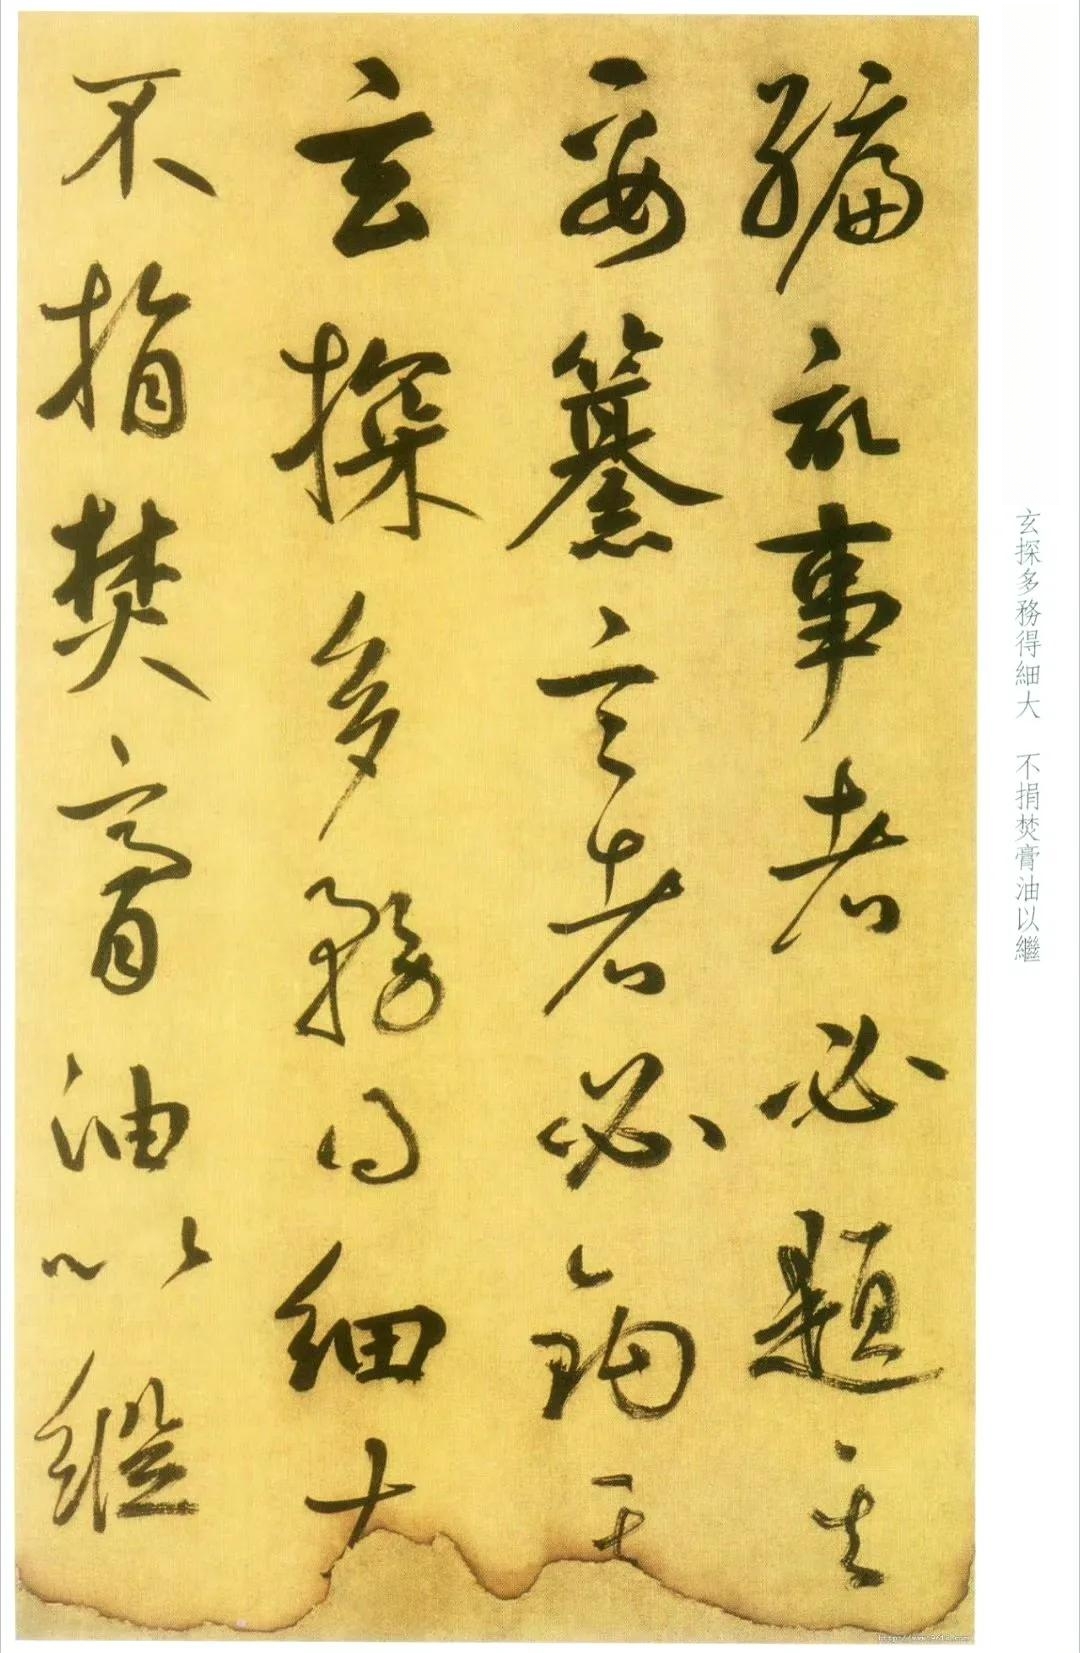 編記事者必題其
要纂言者必鉤其
玄探多務得細大
不捐焚膏油以繼
玄探多務得細大 不捐焚膏油以繼